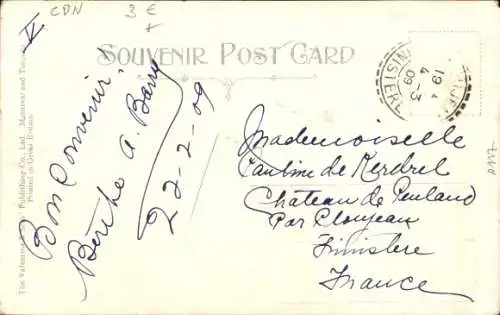 CDN
3 €
V
SOUVENIR POST CARD
The Valentine & Publishing Co., Ltd., Montreal and Toronto
Printed in Great Britain
Bon Souvenir
Berthe A. Barry
22-2-09
FINISTERE
19
4-3
09
Mademoiselle
Pauline de Kerdrel
Château de Penland
Par Cloujean
Finistère
France